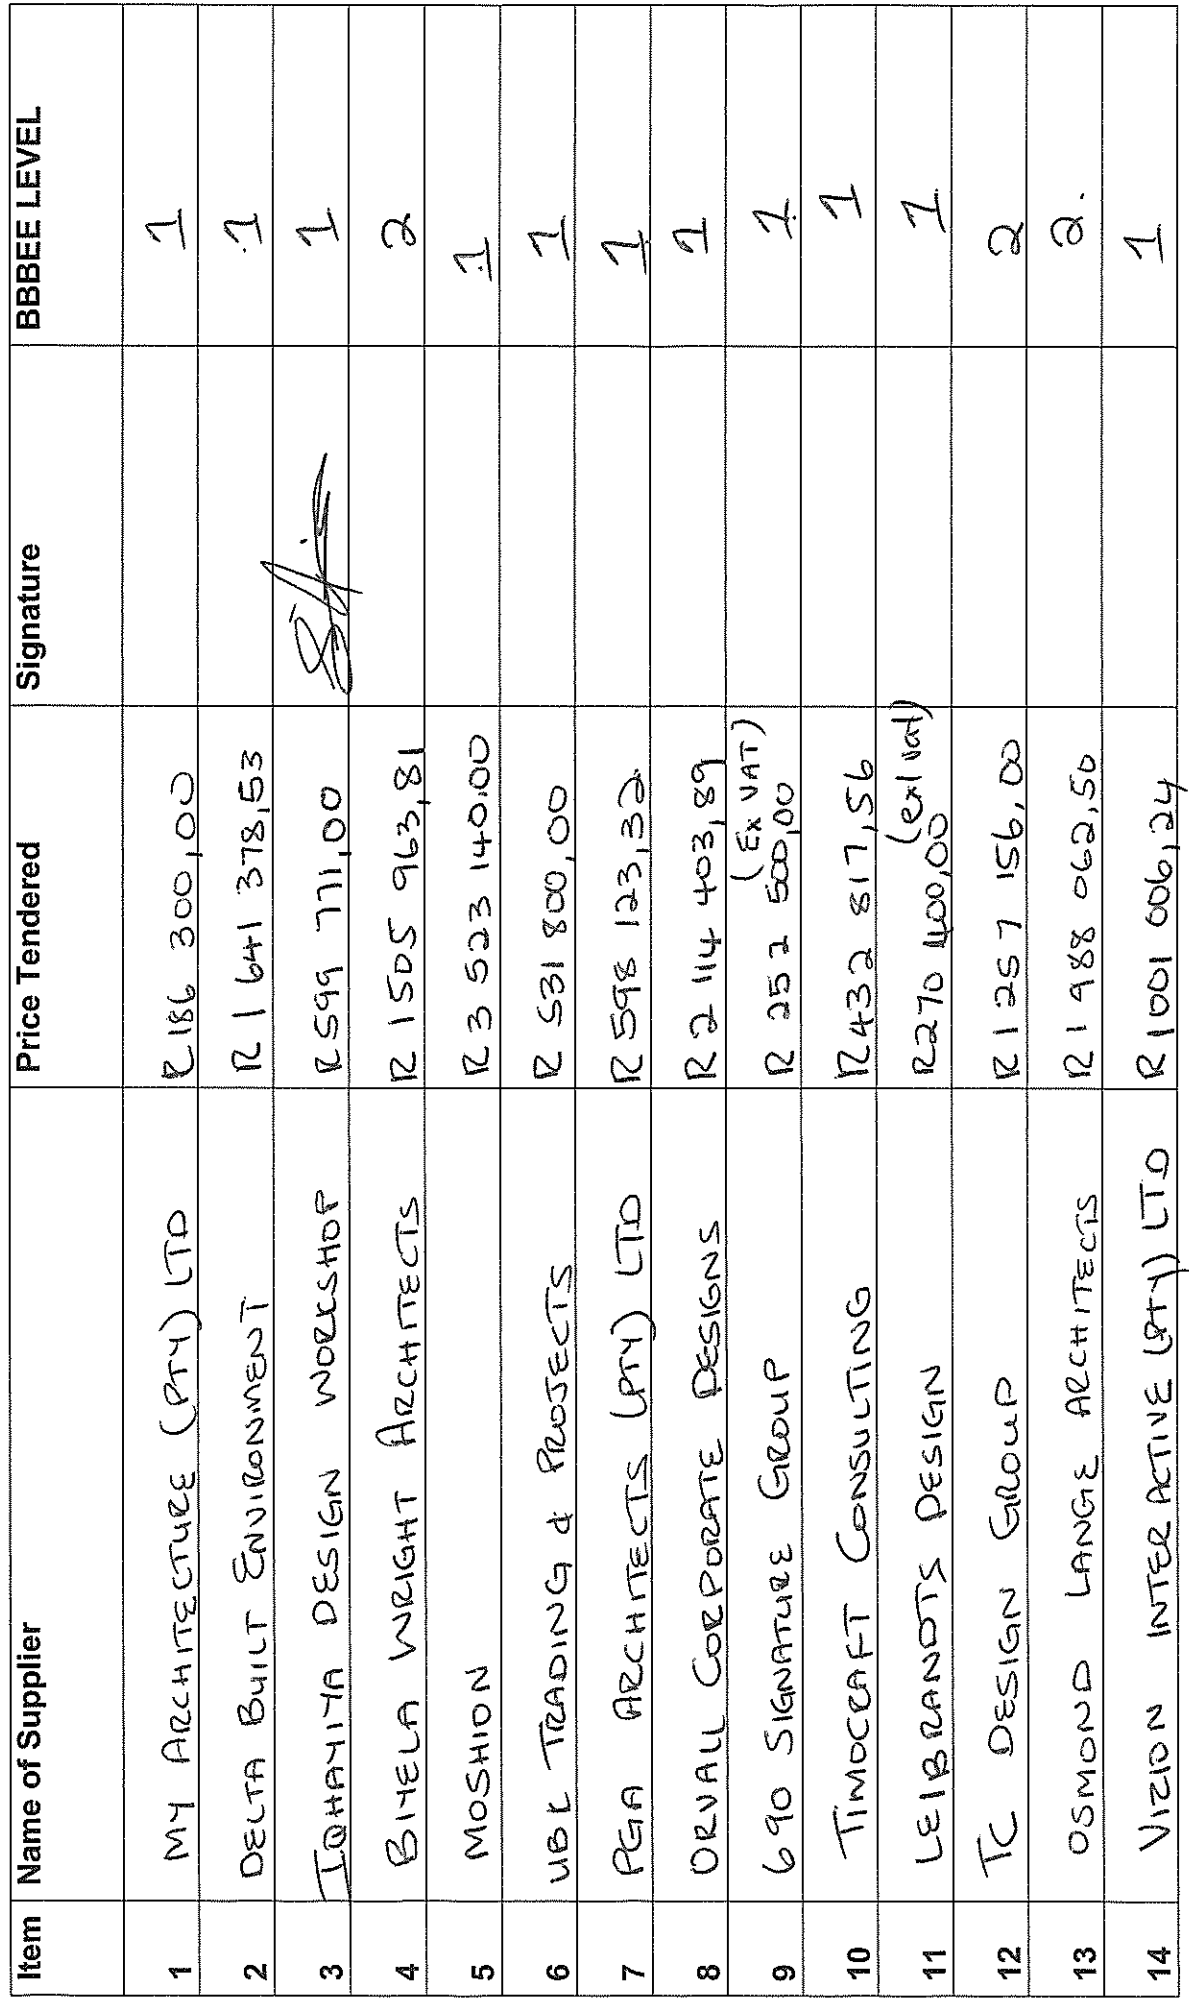 Item Name of Supplier Price Tendered Signature BBBEE LEVEL
1 MY ARCHITECTURE (PTY) LTD R186 300,00 1
2 DELTA BUILT ENVIRONMENT R 1 641 378,53 1
3 IQHAYIYA DESIGN WORKSHOP R599 771,00 1
4 BIYELA WRIGHT ARCHITECTS R 1505 963,81 2
5 MOSHION R 3 523 140.00 1
6 UBK TRADING & PROJECTS R 531 800,00 1
7 PGA ARCHITECTS (PTY) LTD R598 123,32 1
8 ORVALL CORPORATE DESIGNS R 2 114 403,89 1
(Ex VAT)
9 690 SIGNATURE GROUP R 252 500,00 1
10 TIMOCRAFT CONSULTING R432 817,56 1
(exl vat)
11 LEIBRANDTS DESIGN R270 400,00 1
12 TC DESIGN GROUP R1 257 156,00 2
13 OSMOND LANGE ARCHITECTS R1 988 062,50 2.
14 VIZION INTERACTIVE (PTY) LTD R1001 006,24 1